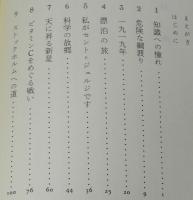 まえがき
はじめに
1 知識への憧れ 1
2 危険な綱渡り 9
3 一九一九年 20
4 漂泊の旅 25
5 私がセント=ジェルジです 36
6 科学の故郷 44
7 天に昇る新星 60
8 ビタミンCをめぐる戦い 76
9 ストックホルムへの道 100